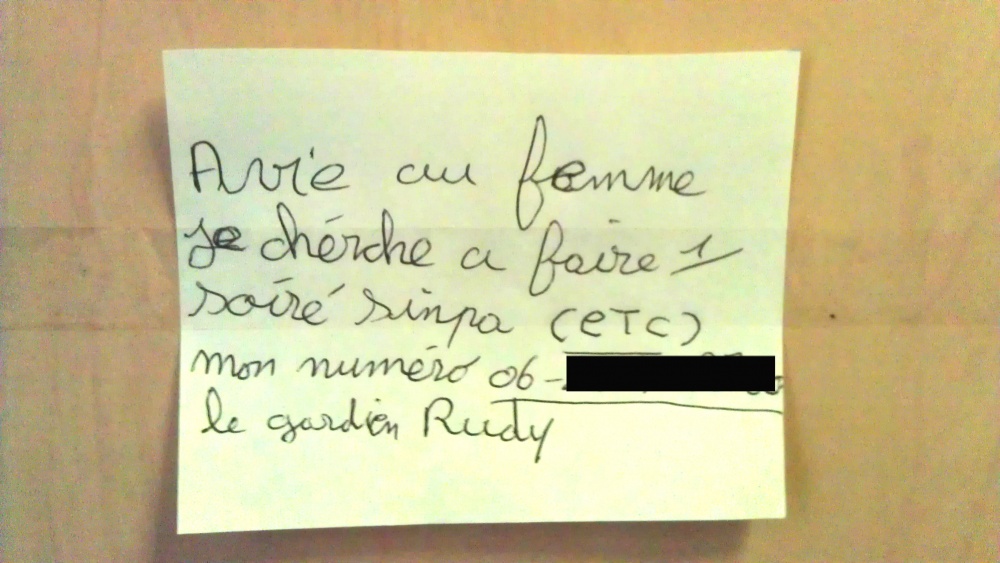 Avie au femme
je chérche a faire 1
soiré sinpa (eTc)
mon numéro 06-
le gardien Rudy